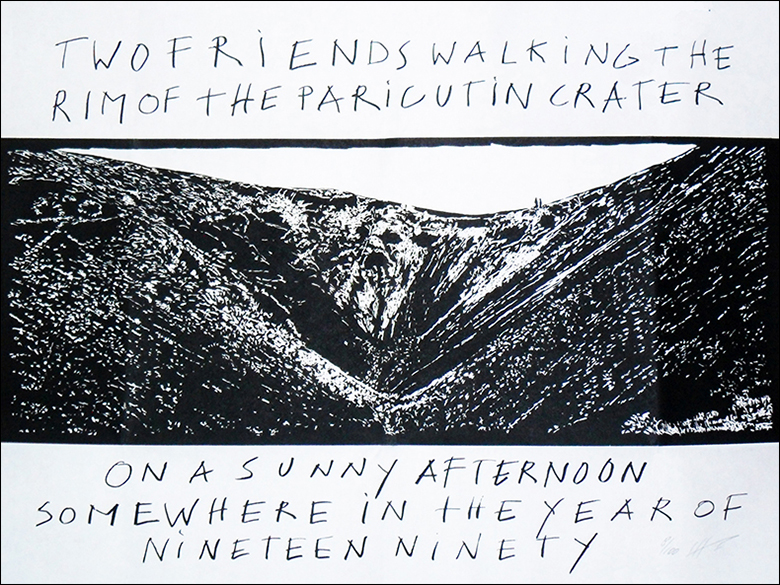 TWO FRiENDS WALKiNG THE
RIM OF THE PARiCUTiN CRATER
ON A SUNNY AFTERNOON
SOMEWHERE iN tHE YEAR OF
NiNETEEN NiNETY